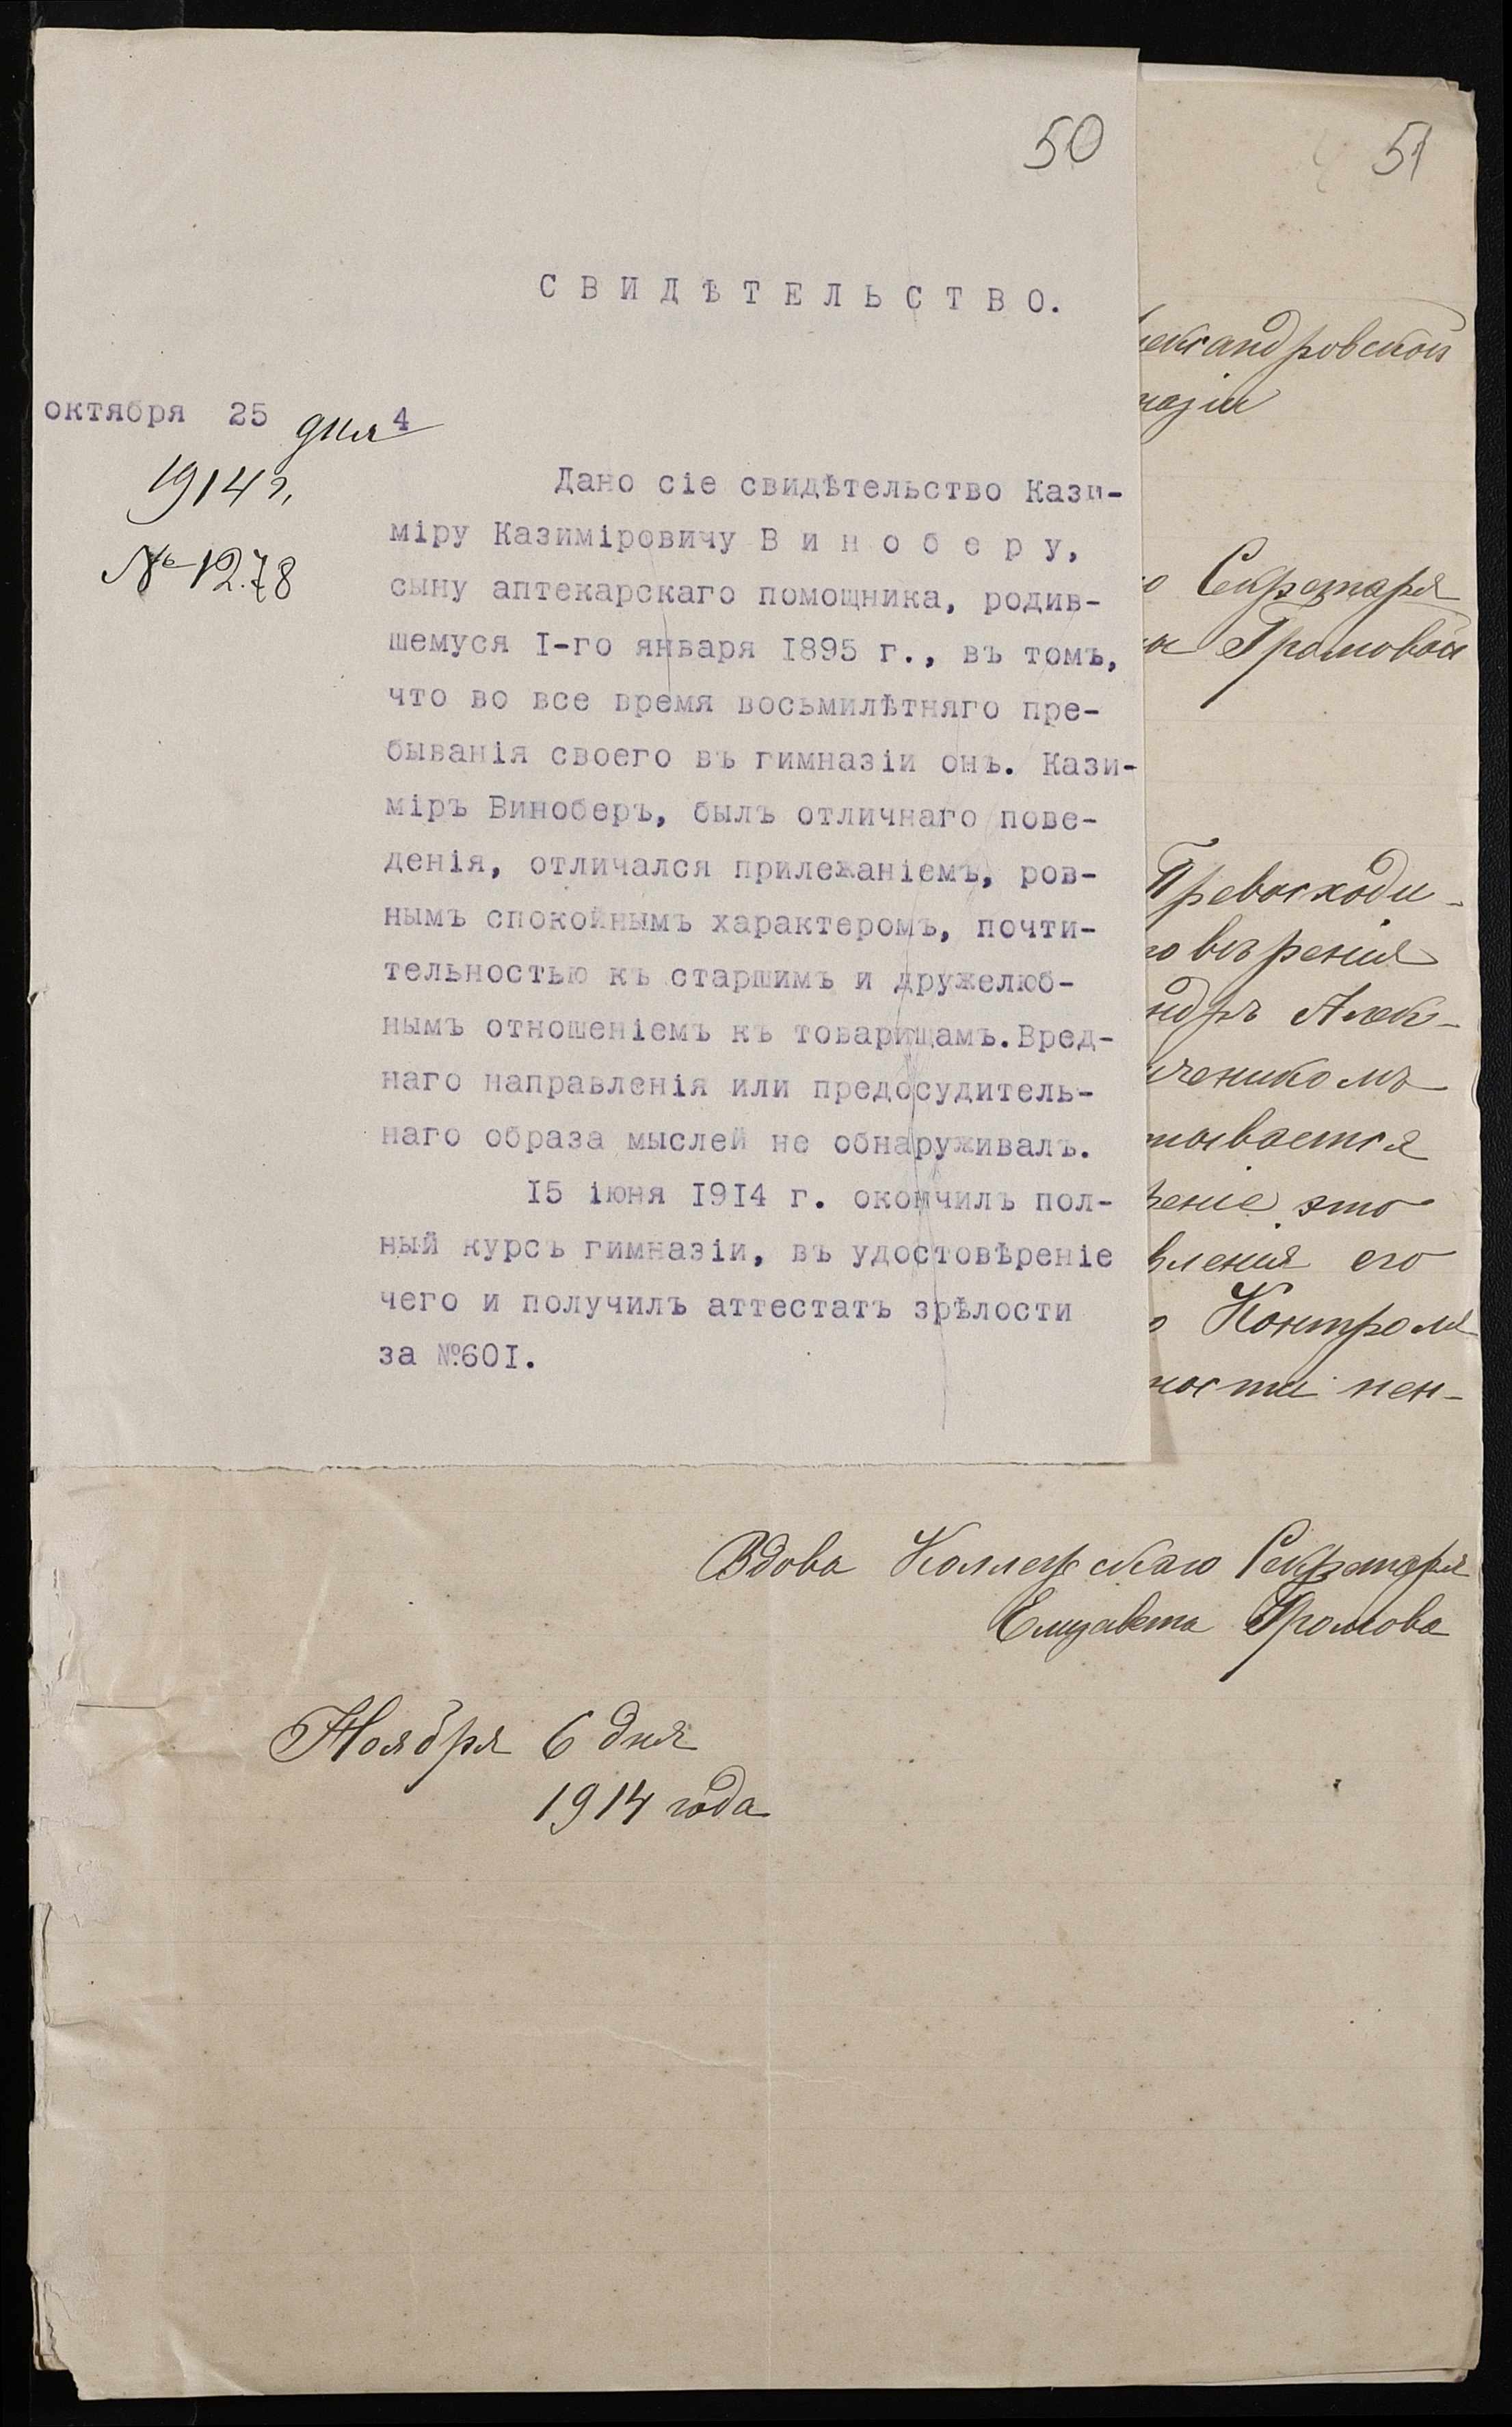 50
СВИДѢТЕЛЬСТВО.
октября 25 дня 4
1914 г.
№ 1278
Дано сіе свидѣтельство Кази-
міру Казиміровичу Виноберу,
сыну аптекарскаго помощника, родив-
шемуся I-го января I895 г., въ томъ,
что во все время восьмилѣтняго пре-
быванія своего въ гимназіи онъ. Кази-
міръ Виноберъ, былъ отличнаго пове-
денія, отличался прилежаніемъ, ров-
нымъ спокойнымъ характеромъ, почти-
тельностью къ старшимъ и дружелюб-
нымъ отношеніемъ къ товарищамъ. Вред-
наго направленія или предосудитель-
наго образа мыслей не обнаруживалъ.
I5 іюня I9I4 г. окончилъ пол-
ный курсъ гимназіи, въ удостовѣреніе
чего и получилъ аттестатъ зрѣлости
за №60I.
51
лександровской
назіи
о Секретаря
ы Громовой
Превосходи-
товѣренія
ндръ Алек-
учеником
тывается
реніе это
вленія его
о Контроля
ности пен-
Вдова Коллежскаго Секретаря
Елизавета Громова
Ноября 6 дня
1914 года